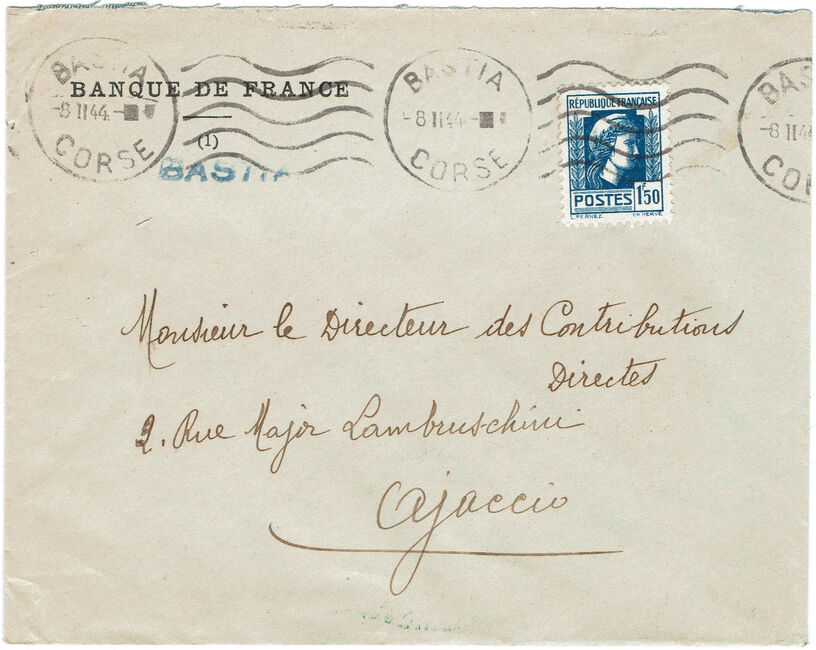 BASTIA
-8 II 44.-
CORSE
BANQUE DE FRANCE
(1)
BASTIA
BASTIA
-8 II 44.-
CORSE
RÉPUBLIQUE FRANÇAISE
POSTES 1F50
P. FERNEZ. CH. HERVÉ
BAS
-8 II 44
CO
Monsieur le Directeur des Contributions
Directes
2. Rue Major Lambruschini
Ajaccio